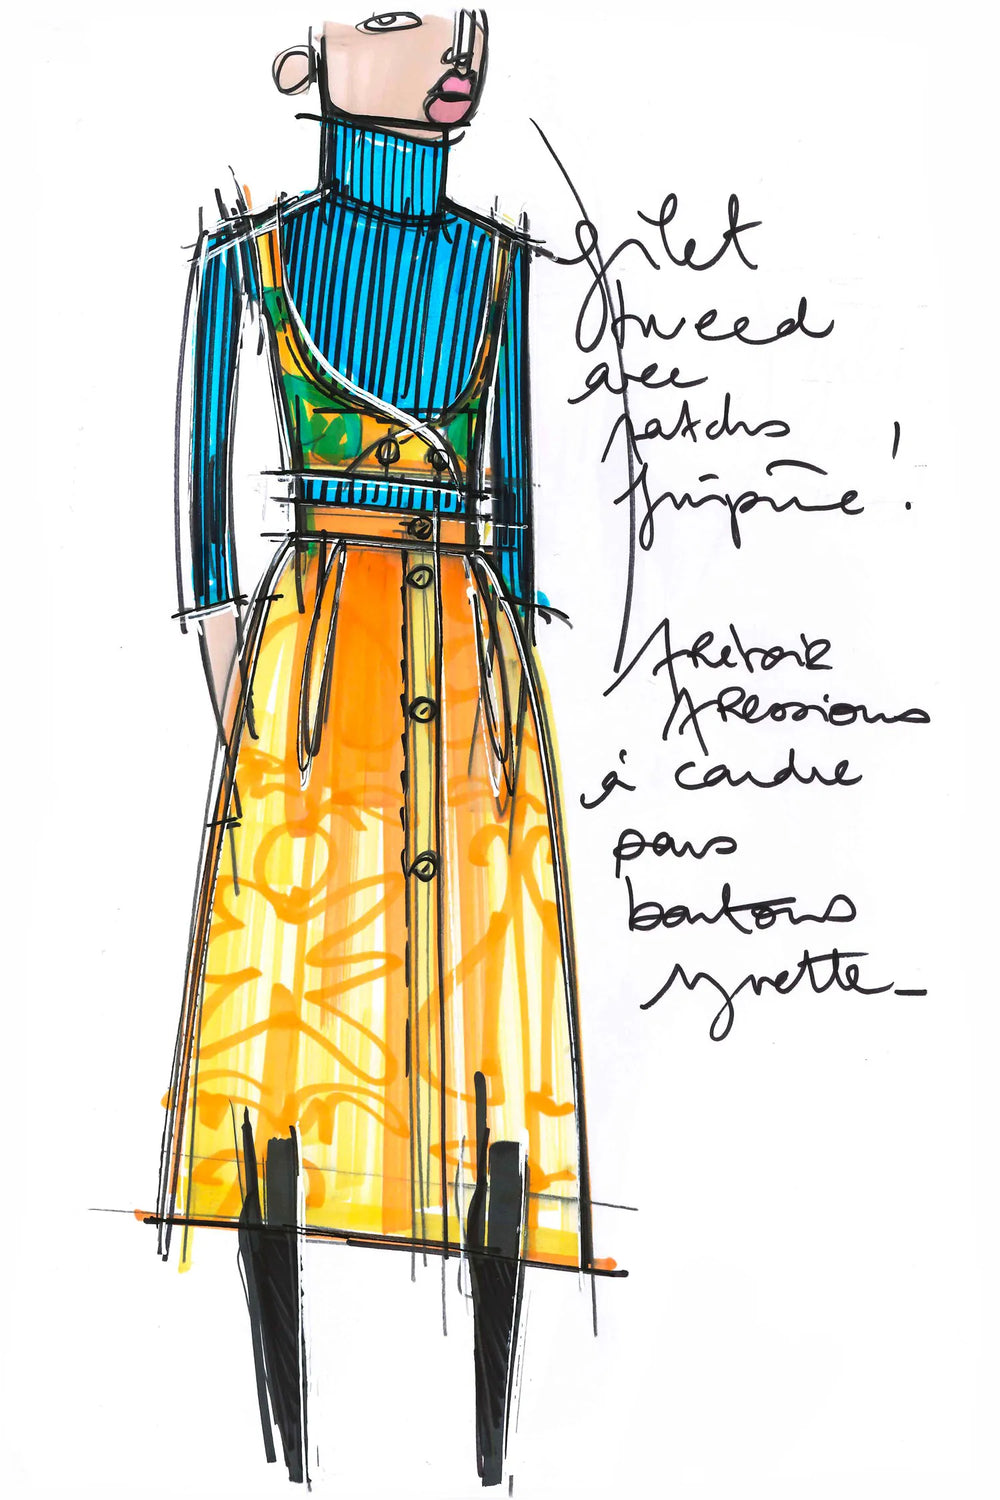 gilet
tweed
avec
patchs
guipure !
prévoir
pressions
à coudre
sous
boutons
yvette_